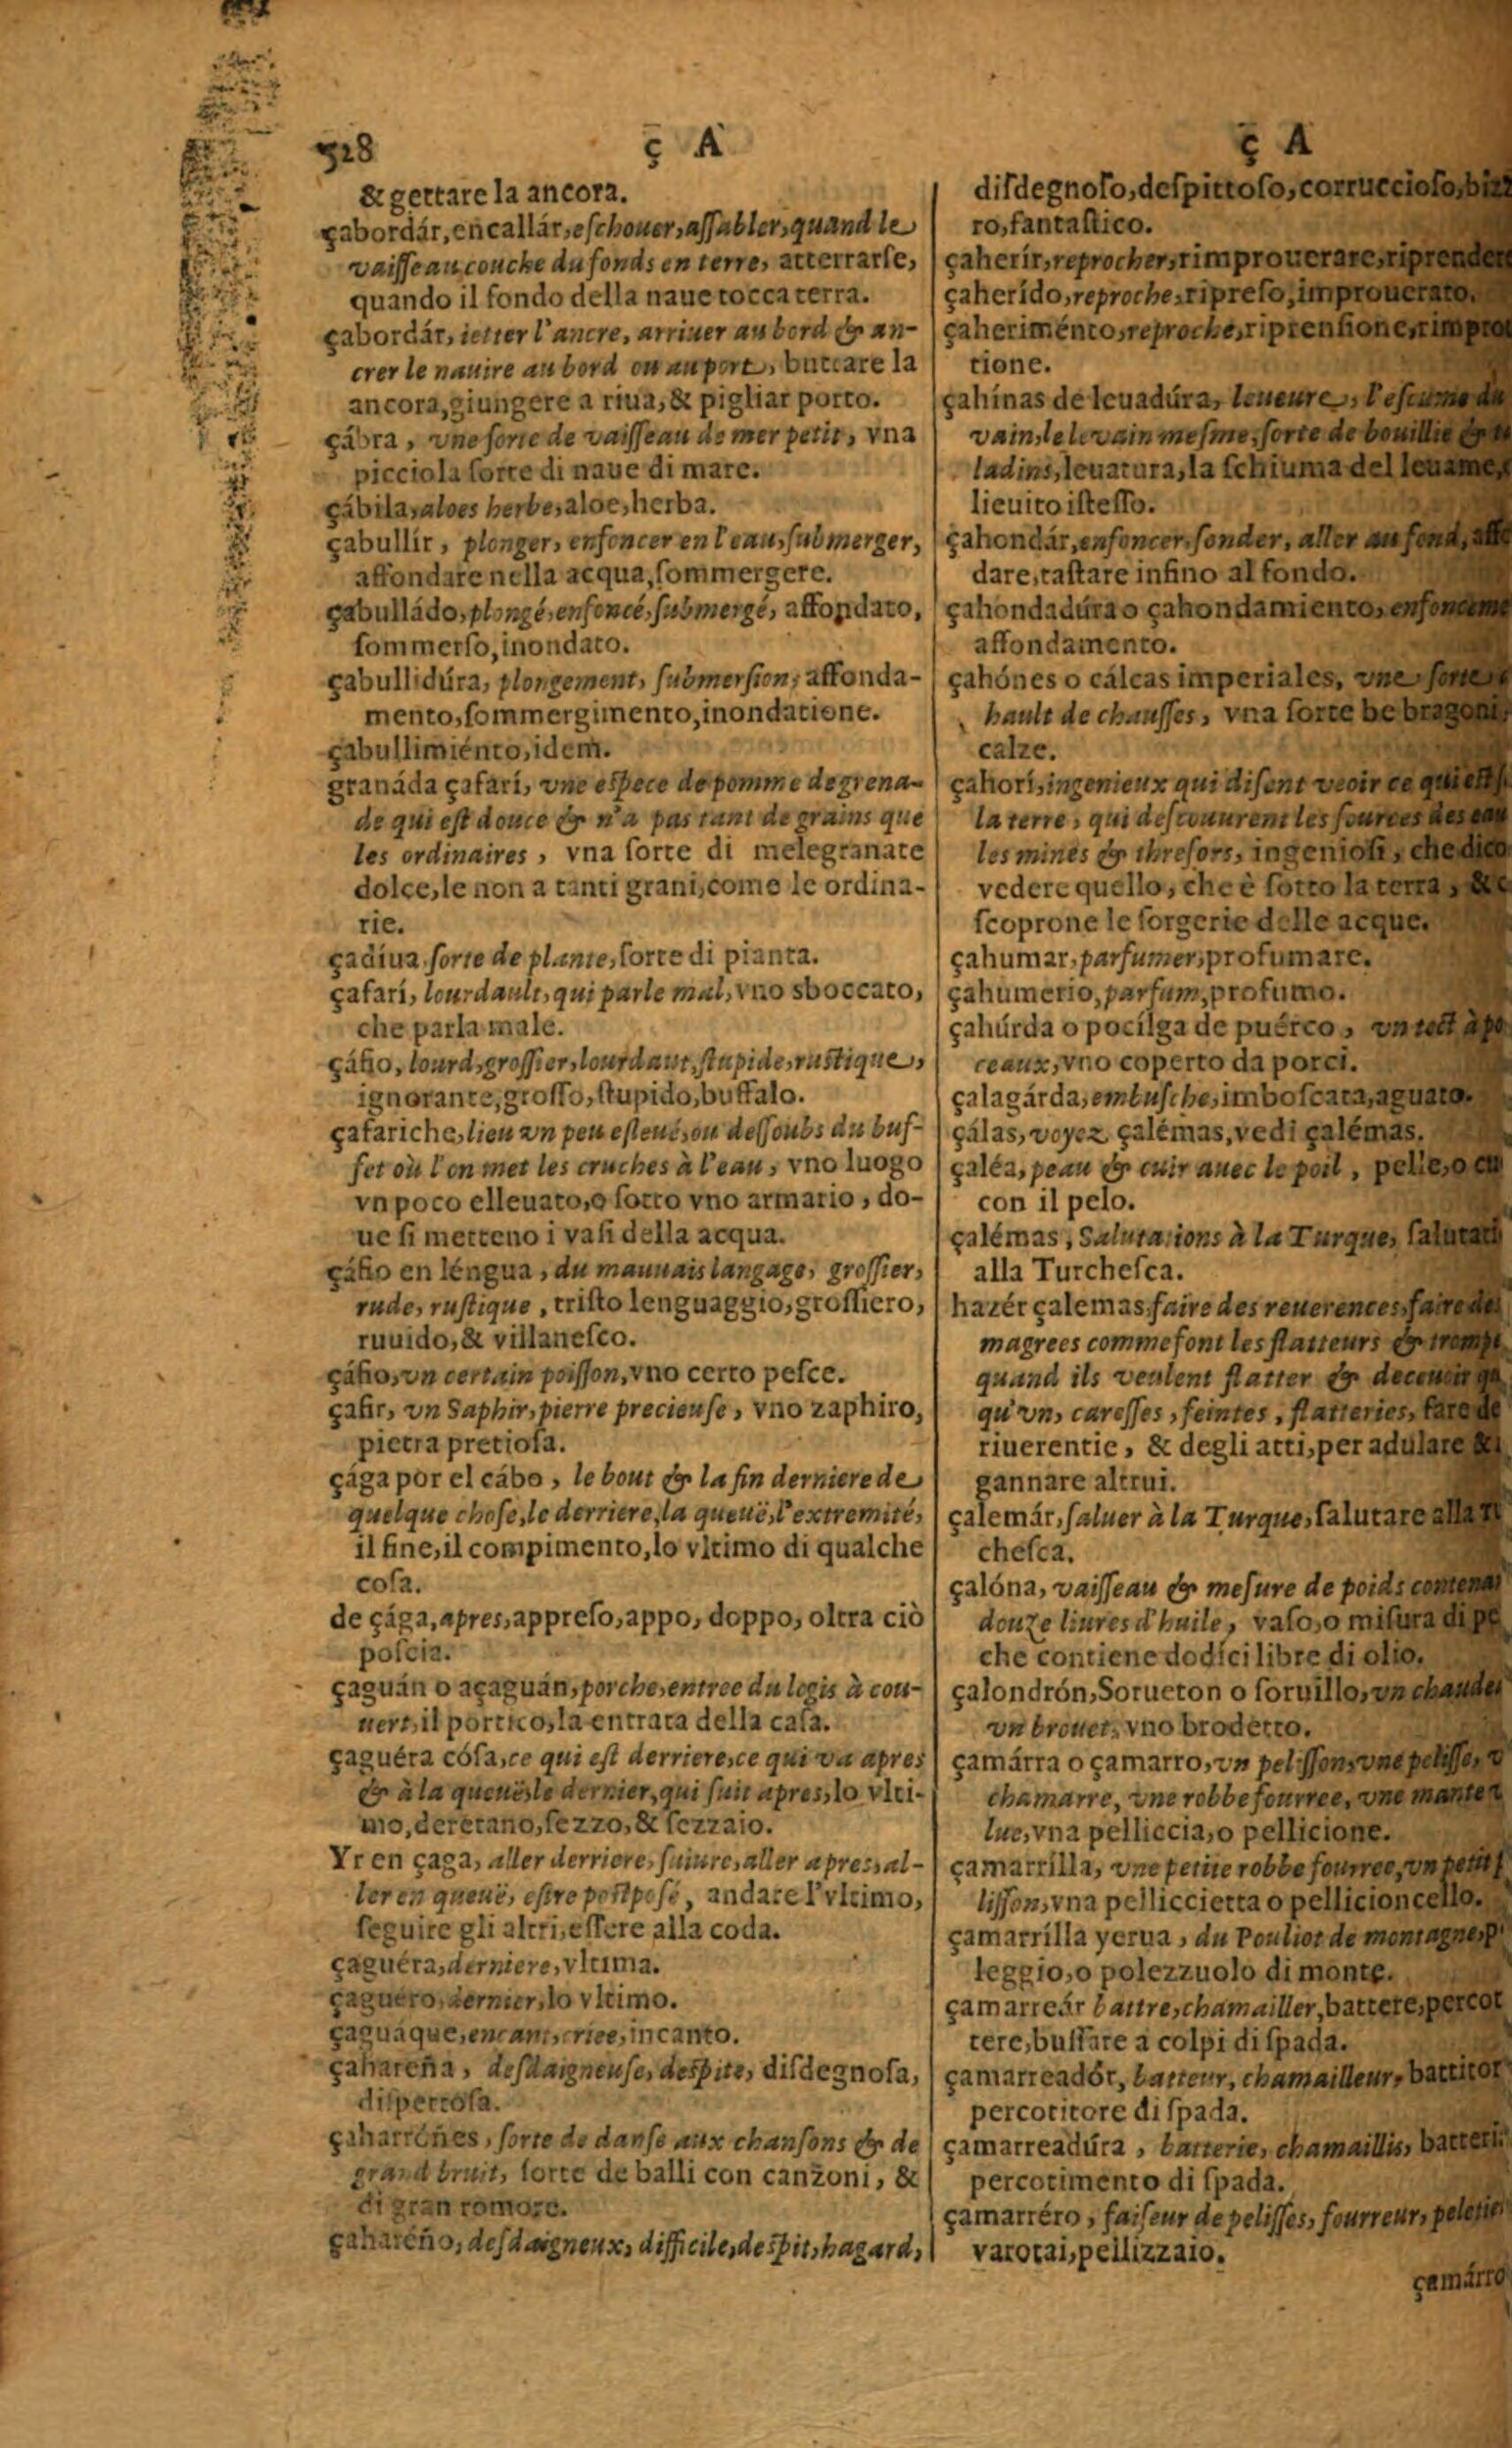 528 ç A
& gettare la ancora.
çabordár, encallár, eſchouer, aſſabler, quand le
vaiſſeau couche du fonds en terre, atterrarſe,
quando il fondo della naue tocca terra.
çabordár, ietter l'ancre, arriuer au bord & an-
crer le nauire au bord ou au port, buttare la
ancora, giungere a riua, & pigliar porto.
çábra, vne ſorte de vaiſſeau de mer petit, vna
picciola ſorte di naue di mare.
çábila, aloes herbe, aloe, herba.
çabullír, plonger, enfoncer en l'eau, ſubmerger,
affondare nella acqua, ſommergere.
çabulládo, plongé, enfoncé, ſubmergé, affondato,
ſommerſo, inondato.
çabullidúra, plongement, ſubmerſion, affonda-
mento, ſommergimento, inondatione.
çabullimiénto, idem.
granáda çafarí, vne eſpece de pomme de grena-
de qui eſt douce & n'a pas tant de grains que
les ordinaires, vna ſorte di melegranate
dolce, le non a tanti grani, come le ordina-
rie.
çadíua, ſorte de plante, ſorte di pianta.
çafarí, lourdault, qui parle mal, vno sboccato,
che parla male.
çáfio, lourd, groſſier, lourdaut, ſtupide, ruſtique,
ignorante, groſſo, ſtupido, buffalo.
çafariche, lieu vn peu eſleué, ou deſſoubs du buf-
fet où l'on met les cruches à l'eau, vno luogo
vn poco elleuato, o ſotto vno armario, do-
ue ſi metteno i vaſi della acqua.
çáfio en léngua, du mauuais langage, groſſier,
rude, ruſtique, triſto lenguaggio, groſſiero,
ruuido, & villaneſco.
çáfio, vn certain poiſſon, vno certo peſce.
çafir, vn Saphir, pierre precieuſe, vno zaphiro,
pietra pretioſa.
çága por el cábo, le bout & la fin derniere de
quelque choſe, le derriere, la queuë, l'extremité,
il fine, il compimento, lo vltimo di qualche
coſa.
de çága, apres, appreſo, appo, doppo, oltra ciò
poſcia.
çaguán o açaguán, porche, entree du logis à cou-
uert, il portico, la entrata della caſa.
çaguéra cóſa, ce qui eſt derriere, ce qui va apres
& à la queuë, le dernier, qui ſuit apres, lo vlti-
mo, deretano, ſezzo, & ſezzaio.
Yr en çaga, aller derriere, ſuiure, aller apres, al-
ler en queuë, eſtre poſtpoſé, andare l'vltimo,
ſeguire gli altri, eſſere alla coda.
çaguéra, derniere, vltima.
çaguéro, dernier, lo vltimo.
çaguáque, encant, criee, incanto.
çahareña, deſdaigneuſe, deſpite, diſdegnoſa,
diſpettoſa.
çaharréñes, ſorte de danſe aux chanſons & de
grand bruit, ſorte de balli con canzoni, &
di gran romore.
çaharéño, deſdaigneux, difficile, deſpit, hagard,
ç A
diſdegnoſo, deſpittoſo, corruccioſo,
ro, fantaſtico.
çaherír, reprocher, rimprouerare, riprendere
çaherído, reproche, ripreſo, improuerato.
çaheriménto, reproche, riprenſione,
tione.
çahínas de leuadúra, leueure, l'eſcume du
vain, le levain meſme, ſorte de bouillie &
ladins, leuatura, la ſchiuma del leuame,
lieuito iſteſſo.
çahondár, enfoncer, fonder, aller au fond,
dare, taſtare infino al fondo.
çahondadúra o çahondamiento,
affondamento.
çahónes o cálcas imperiales, vne ſorte
hault de chauſſes, vna ſorte be bragoni,
calze.
çahorí, ingenieux qui diſent veoir ce qui eſt
la terre, qui deſcouurent les ſources des eau
les mines & threſors, ingenioſi, che dico
vedere quello, che è ſotto la terra, &
ſcoprone le ſorgerie delle acque.
çahumar, parfumer, profumare.
çahumerio, parfum, profumo.
çahúrda o pocílga de puérco, vn tect à po
ceaux, vno coperto da porci.
çalagárda, embuſche, imboſcata, aguato.
çálas, voyez çalémas, vedi çalémas.
çaléa, peau & cuir auec le poil, pelle, o cu
con il pelo.
çalémas, Salutations à la Turque, ſalutati
alla Turcheſca.
hazér çalemas, faire des reuerences, faire des
magrees comme font les flatteurs & trompe
quand ils veulent flatter & deceuoir
qu'vn, careſſes, feintes, flatteries, fare de
riuerentie, & degli atti, per adulare &
gannare altrui.
çalemár, ſaluer à la Turque, ſalutare alla
cheſca.
çalóna, vaiſſeau & meſure de poids contena
douze liures d'huile, vaſo, o miſura di pe
che contiene dodíci libre di olio.
çalondrón, Sorueton o ſoruillo, vn chaude
vn brouet, vno brodetto.
çamárra o çamarro, vn peliſſon, vne peliſſe,
chamarre, vne robbe fourree, vne mante
lue, vna pelliccia, o pellicione.
çamarrílla, vne petite robbe fourree, vn petit
liſſon, vna pelliccietta o pellicioncello.
çamarrílla yerua, du Pouliot de montagne,
leggio, o polezzuolo di monte.
çamarreár battre, chamailler, battere, percot
tere, buſſare a colpi di ſpada.
çamarreadór, batteur, chamailleur, battitor
percotitore di ſpada.
çamarreadúra, batterie, chamaillis, batteri
percotimento di ſpada.
çamarréro, faiſeur de peliſſes, fourreur, peletie
varotai, pellizzaio.
çamárro